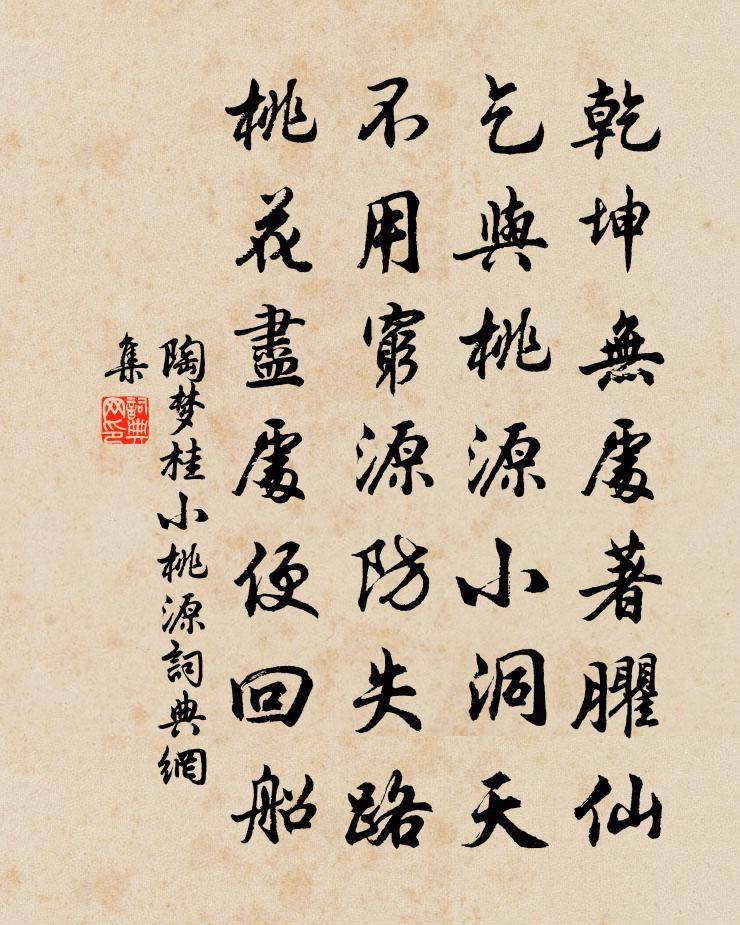 乾坤無處著臞仙
乞與桃源小洞天
不用窮源防失路
桃花盡處便回船
陶梦桂小桃源詞典網
集
詞典
网印